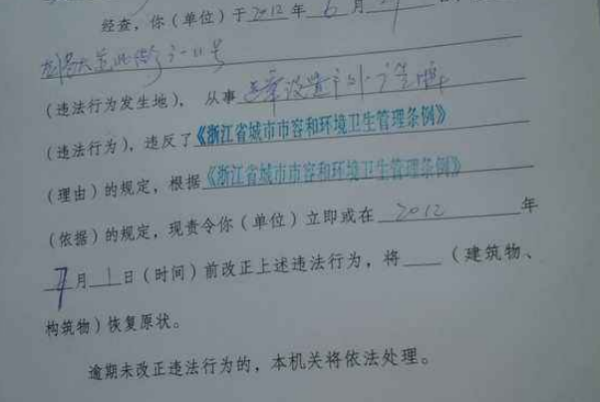 经查，你（单位）于2012年6月
号
（违法行为发生地），从事违章设置户外广告牌
（违法行为），违反了《浙江省城市市容和环境卫生管理条例》
（理由）的规定，根据《浙江省城市市容和环境卫生管理条例》
（依据）的规定，现责令你（单位）立即或在2012年
7月1日（时间）前改正上述违法行为，将____（建筑物、
构筑物）恢复原状。
逾期未改正违法行为的，本机关将依法处理。